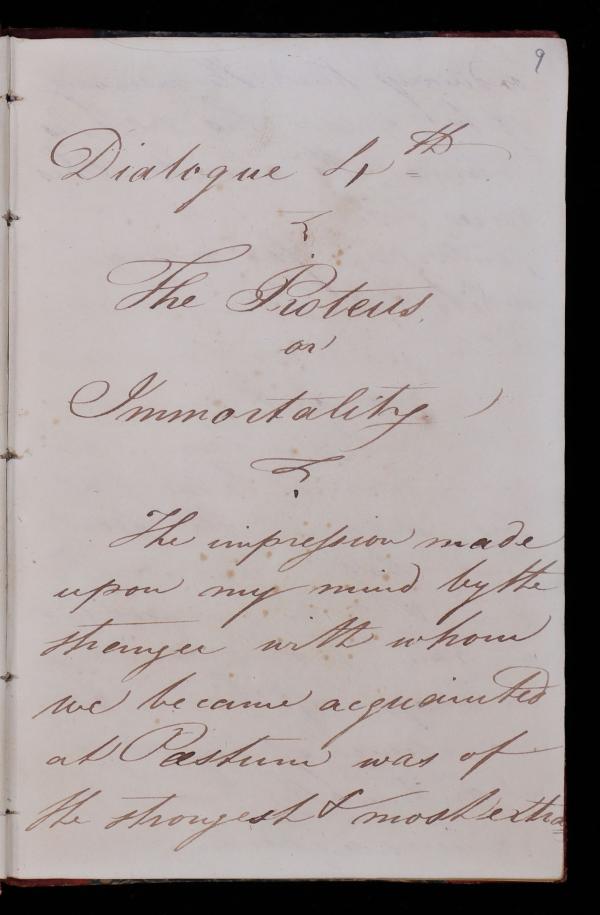 9
Dialogue 4th
The Proteus
or
Immortality
The impression made
upon my mind by the
stranger with whom
we became acquainted
at Pæstum was of
the strongest & most extra